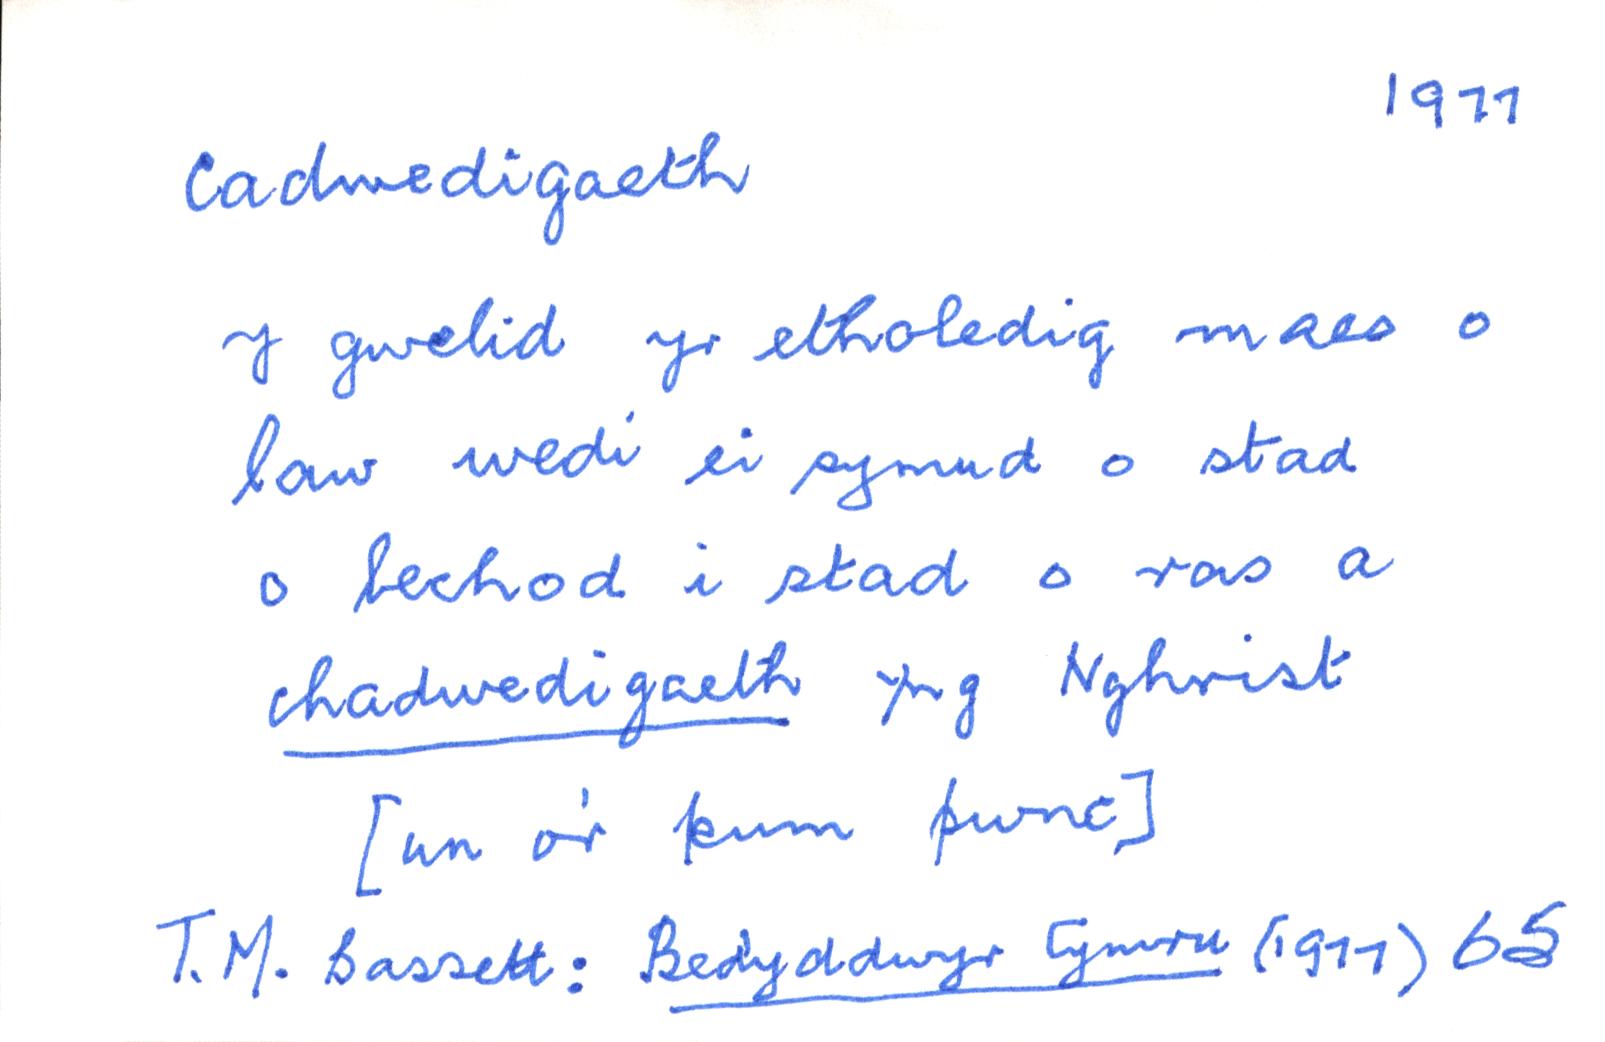 1977
Cadwedigaeth
y gwelid yr etholedig maes o
law wedi ei symud o stad
o bechod i stad o ras a
chadwedigaeth yng Nghrist
[un o'r pum pwnc]
T.M. Bassett: Bedyddwyr Cymru (1977) 65